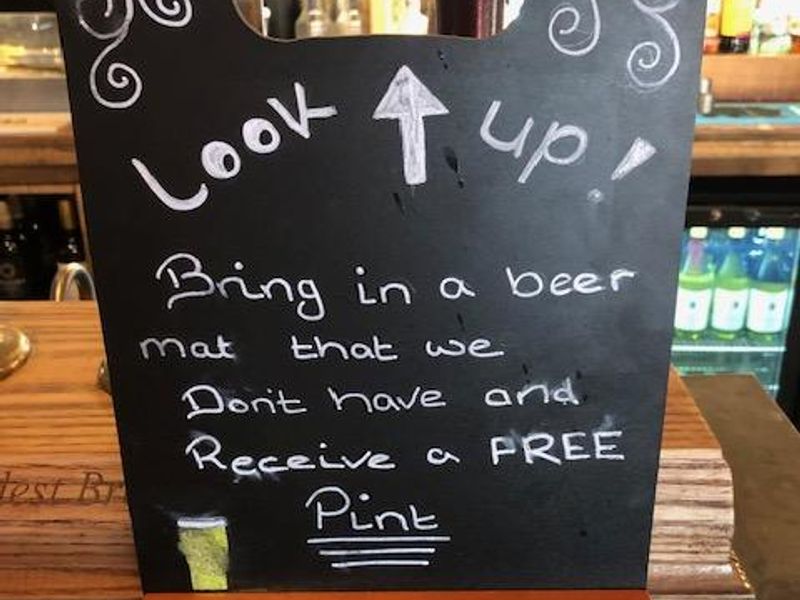 Look up!
Bring in a beer
mat that we
Don't have and
Receive a FREE
Pint